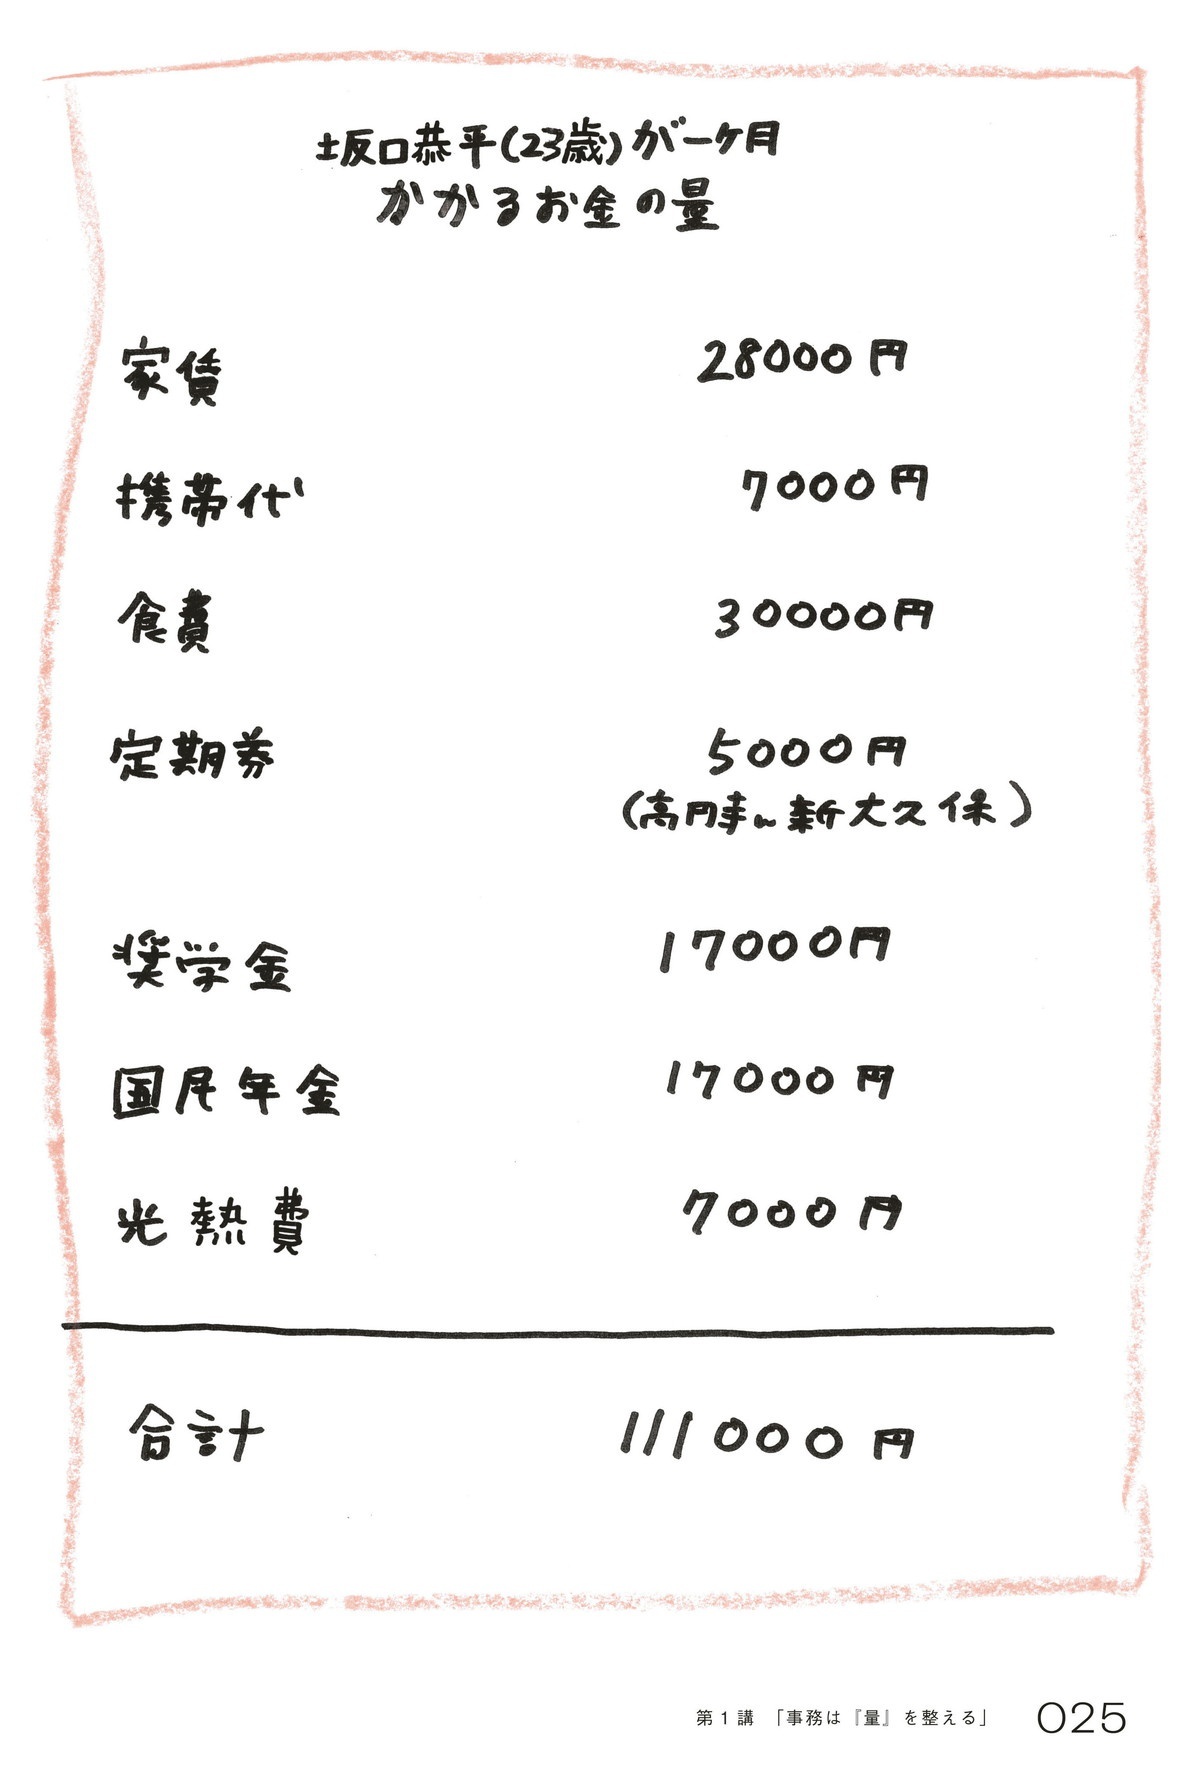 坂口恭平(23歳)が一ヶ月
かかるお金の量
家賃 28000円
携帯代 7000円
食費 30000円
定期券 5000円
(高円寺〜新大久保)
奨学金 17000円
国民年金 17000円
光熱費 7000円
合計 111000円
第1講 「事務は『量』を整える」 025